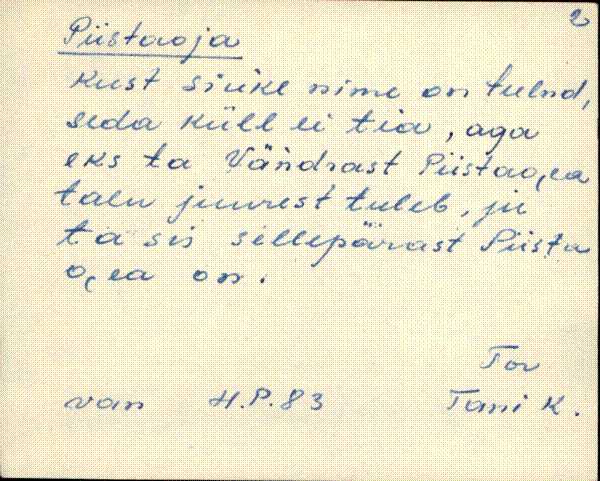 2
Piistaoja
kust siuke nime on tulnd,
seda küll ei tia, aga
eks ta Vändrast Piistao,ea
talu juurest tuleb, ju
ta sis sellepärast Piista
o,ea on.
Tor
van H.P. 83 Tani K.